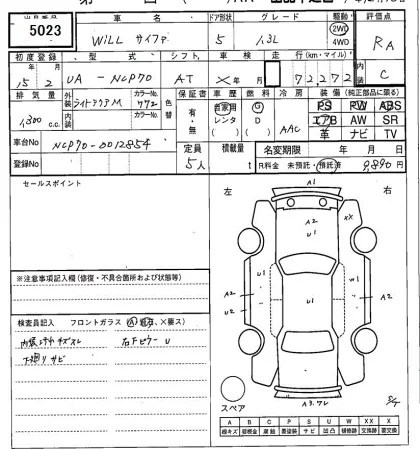 出品番号 車名 ドア形状 グレード 駆動 評価点
5023 WiLL サイファ 5 1.3L 2WD 4WD RA
初度登録 型式 シフト 車検 走行(km・マイル) 内装
15年 2月 UA-NCP70 AT ×年 月 72,272 C
排気量 外装 カラーNo. 色替 保証書 車歴 燃料 冷房 装備(純正部品に限る)
1,300 c.c. ライトアクアM 772 有・無 自家用 G AAC PS PW ABS
内装 カラーNo. レンタ D エアB AW SR
( ) ( ) 革 ナビ TV
車台No NCP70-0012854 定員 積載量 名変期限 年 月 日
登録No 5人 t R料金 未預託・預託済 9,890円
セールスポイント
左 右
A1
A2
U1
XX
U1
A2
U2
W1
U1
A2
※注意事項記入欄(修復・不具合箇所および状態等)
検査員記入 フロントガラス(A、飛石、×要ス)
内装ヨゴレ キズスレ 右Fピラー U
下廻りサビ
スペア
A3.ワレ
A B C P S U W X XX
線キズ 鈑金 腐蝕 要塗装 サビ 凹凸 補修跡 交換跡 要交換